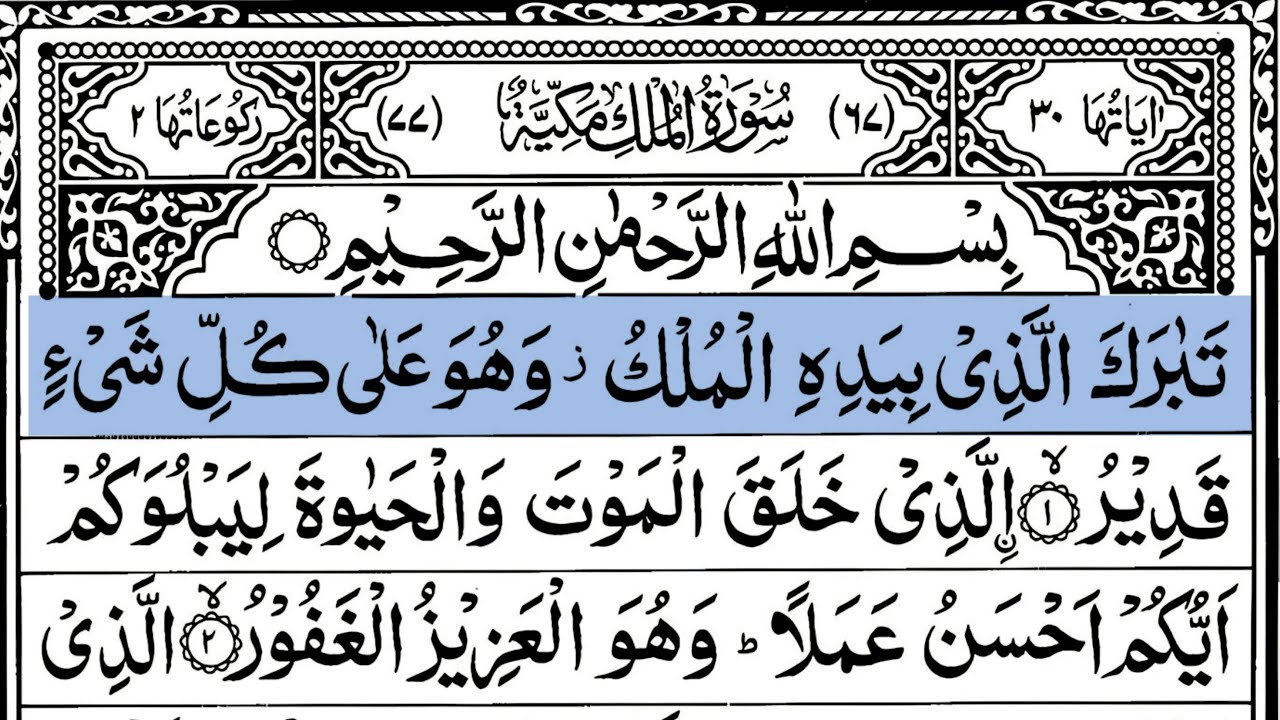 اٰيَاتُهَا ٣٠ (٦٧) سُوْرَةُ الْمُلْكِ مَكِّيَّةٌ (٧٧) رُكُوْعَاتُهَا ٢
بِسْمِ اللّٰهِ الرَّحْمٰنِ الرَّحِيْمِ
تَبٰرَكَ الَّذِىْ بِيَدِهِ الْمُلْكُ ز وَهُوَ عَلٰى كُلِّ شَىْءٍ
قَدِيْرُ ۙ﴿١﴾ اِۨلَّذِىْ خَلَقَ الْمَوْتَ وَالْحَيٰوةَ لِيَبْلُوَكُمْ
اَيُّكُمْ اَحْسَنُ عَمَلًا ؕ وَهُوَ الْعَزِيْزُ الْغَفُوْرُ ۙ﴿٢﴾ الَّذِىْ